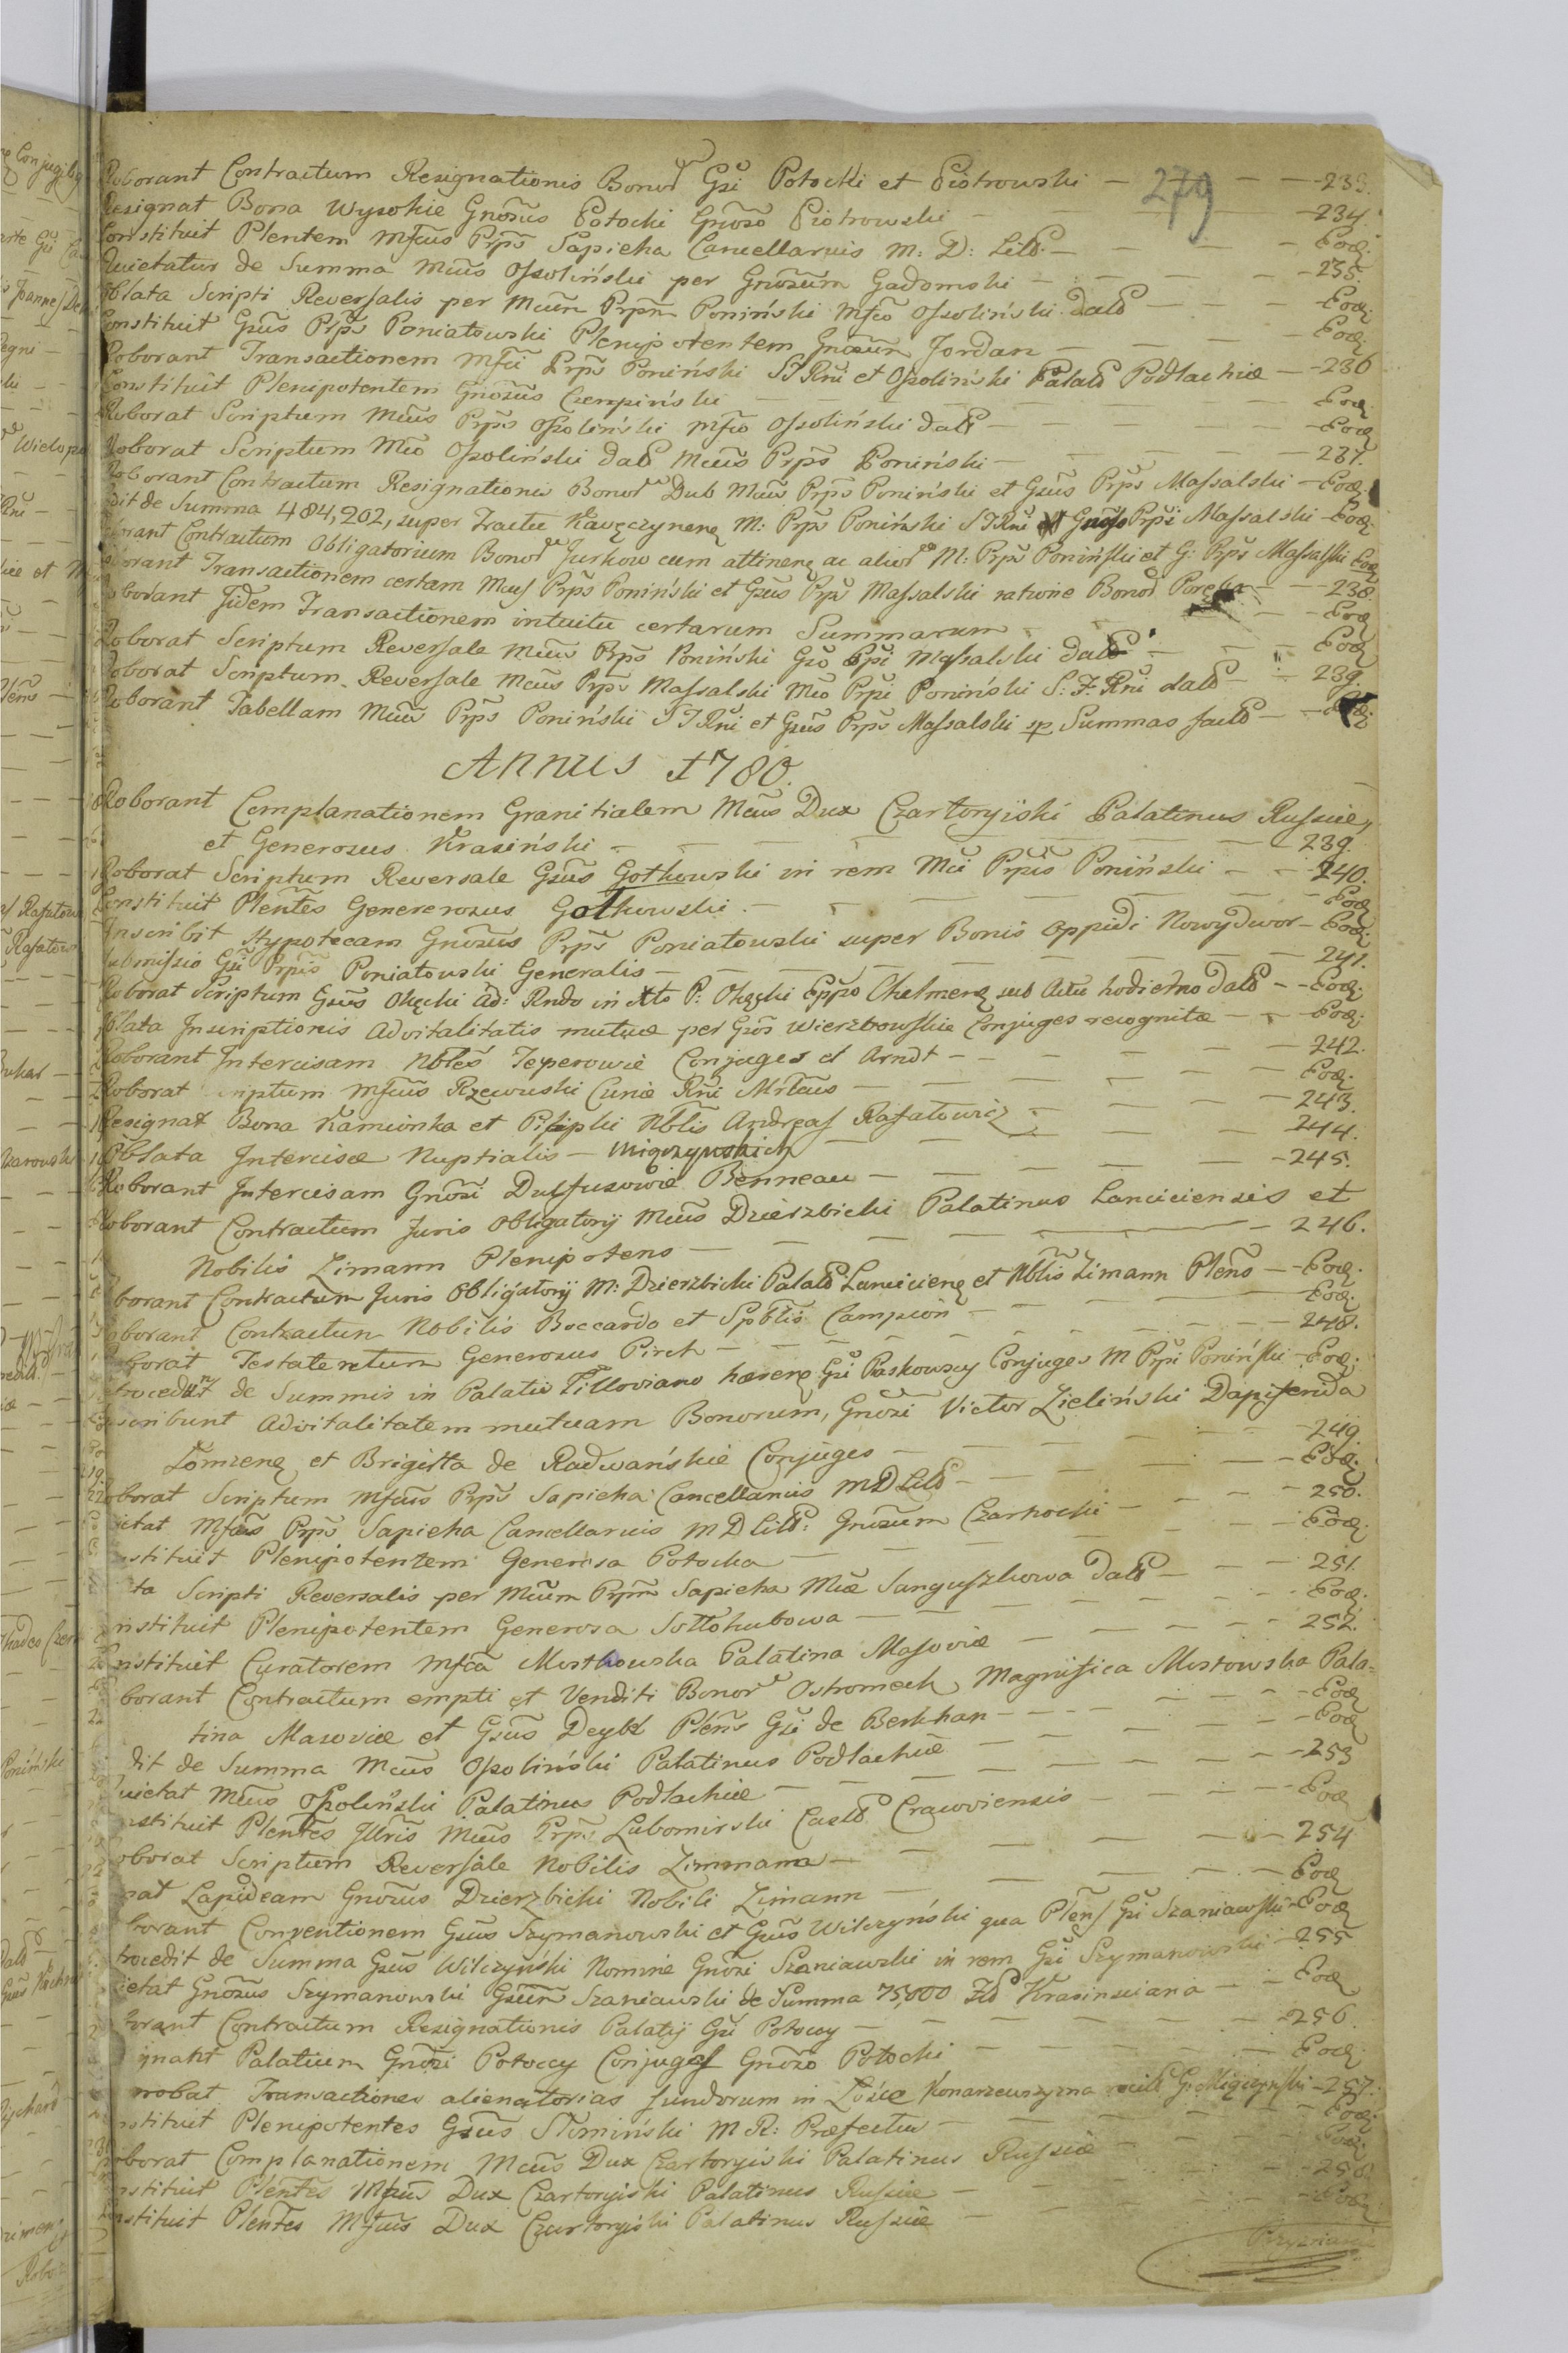 279
Roborant Contractum Resignationis Bonor Gsi Potocki et Piotrowski — 233.
Resignat Bona Wysokie Gnosus Potocki Gnoso Piotrowski — 234.
Constituit Plentem Mfcus Prps Sapieha Cancellarius M: D: Litt — Eod.
Quietatur de Summa Mcus Ossoliński per Gnosum Gadomski — 235.
Oblata Scripti Reversalis per Mcum Prpm Poniński Mfco Ossoliński dat — Eod.
Constituit Gsus Prps Poniatowski Plenipotentem Gnosum Jordan — Eod.
Roborant Transactionem Mfci Prps Poniński S T Rni et Ossoliński Palat Podlachiæ — 236
Constituit Plenipotentem Gnosus Czempiński — Eod.
Roborat Scriptum Mcus Prps Ossoliński Mfco Ossoliński dat — Eod
Roborat Scriptum Mco Ossoliński dat Mcus Prps Poniński — 237.
Roborant Contractum Resignationis Bonor Dub Mcus Prps Poniński et Gsus Prps Massalski — Eod.
dit de Summa 484,202, super Tractu Kawęczynen M: Prps Poniński S T Rni et Gnoso Prpi Massalski — Eod.
borant Contractum Obligatorium Bonor Jurkow cum attinen ac alior M: Prps Poniński et G: Prps Massalski Eod
borant Transactionem certam Mcus Prps Poniński et Gsus Prps Massalski ratione Bonor Poręba — 238
borant Jidem Transactionem intuitu certarum Summarum — Eod
Roborat Scriptum Reversale Mcus Prps Poniński Gso Prpi Massalski dat — Eod
Roborat Scriptum Reversale Mcus Prps Massalski Mco Prpi Poniński S: T: Rni dat — 239.
Roborant Tabellam Mcus Prps Poniński S T Rni et Gsus Prps Massalski sp Summas fact — Eod.
Annus 1780.
Roborant Complanationem Granitialem Mcus Dux Czartoryiski Palatinus Russiæ,
et Generosus Krasiński — 239.
Roborat Scriptum Reversale Gsus Gotkowski in rem Mci Prpis Poniński — 240.
Constituit Plentes Genererosus Gotkowski — Eod
Inscribit Hypotecam Gnosus Prps Poniatowski super Bonis Oppidi Nowydwor — Eod.
submissio Gsi Prpis Poniatowski Generalis — 241.
Roborat Scriptum Gsus Okęcki ad: Rndo in Xto P: Okęcki Eppo Chelmen sub Actu hodierno dat — Eod.
Oblata Inscriptionis Advitalitatis mutuæ per Gsos Wierzbowskie Conjuges recognitæ — Eod.
Roborant Intercisam Nbles Teperowie Conjuges et Arndt — 242.
Roborat riptum Mfcus Rzewuski Curiæ Rni Mrlcus — Eod.
Resignat Bona Kamionka et Pilipki Nblis Andreas Rafałowicz — 243.
Oblata Intercisæ Nuptialis — Miączyńskich — 244.
Roborant Intercisam Gnosi Dulfusowie Benneau — 245.
Roborant Contractum Juris Obligatorij Mcus Dzierzbicki Palatinus Lanciciensis et
Nobilis Zimann Plenipotens — 246.
borant Contractum Juris Obligatorij M: Dzierzbicki Palat Lancicien et Nblis Zimann Plens — Eod.
borant Contractum Nobilis Boccardo et Spblis Campioni — Eod.
borat Testatentum Generosus Pirch — 248.
trocedunt de Summis in Palatio Tilloviano hæren Gsi Raskowscy Conjuges M Prpi Poniński — Eod.
scribunt Advitalitatem mutuam Bonorum, Gnosi Victor Zieliński Dapiferida
Łomzen et Brigitta de Radwańskie Conjuges — 249.
borat Scriptum Mfcus Prps Sapieha Cancellarius M D Litt — Eod.
ietat Mfcus Prps Sapieha Cancellarius M D Litt: Gnosum Czarnocki — 250.
stituit Plenipotentem Generosa Potocka — Eod.
ta Scripti Reversalis per Mcum Prpm Sapieha Mcæ Sanguszkowa dat — 251.
nstituit Plenipotentem Generosa Sołłohubowa — Eod.
nstituit Curatorem Mfca Mostkowska Palatina Masoviæ — 252.
borant Contractum empti et Venditi Bonor Ostromech Magnifica Mostowska Pala=
tina Masoviæ et Gsus Deybl Plens Gsi de Berkhan — Eod
dit de Summa Mcus Ossoliński Palatinus Podlachiæ — Eod
uietat Mcus Ossoliński Palatinus Podlachiæ — 253
nstituit Plentes Jllris Mcus Prps Lubomirski Castt Cracoviensis — Eod
oborat Scriptum Reversale Nobilis Zimmann — 254
nat Lapideam Gnosus Dzierzbicki Nobili Zimann — Eod
borant Conventionem Gsus Szymanowski et Gsus Wilczyński qua Plens Gsi Szaniawski — Eod
trocedit de Summa Gsus Wilczyński Nomine Gnosi Szaniawski in rem Gsi Szymanowski — 255
ietat Gnosus Szymanowski Gsum Szaniawski de Summa 75,000 Fld Krasinsciana — Eod
borant Contractum Resignationis Palatij Gsi Potoccy — 256.
ignant Palatium Gnosi Potoccy Conjuges Gnoso Potocki — Eod.
robat Transactiones alienatorias fundorum in Konarzewszyzna Gs Miączyński — 257.
nstituit Plenipotentes Gsus Słomiński M R: Præfectus — Eod.
oborat Complanationem Mcus Dux Czartoryiski Palatinus Russiæ — Eod.
nstituit Plentes Mfcus Dux Czartoryiski Palatinus Russiæ — 258
nstituit Plentes Mfcus Dux Czartoryiski Palatinus Russiæ — Eod.